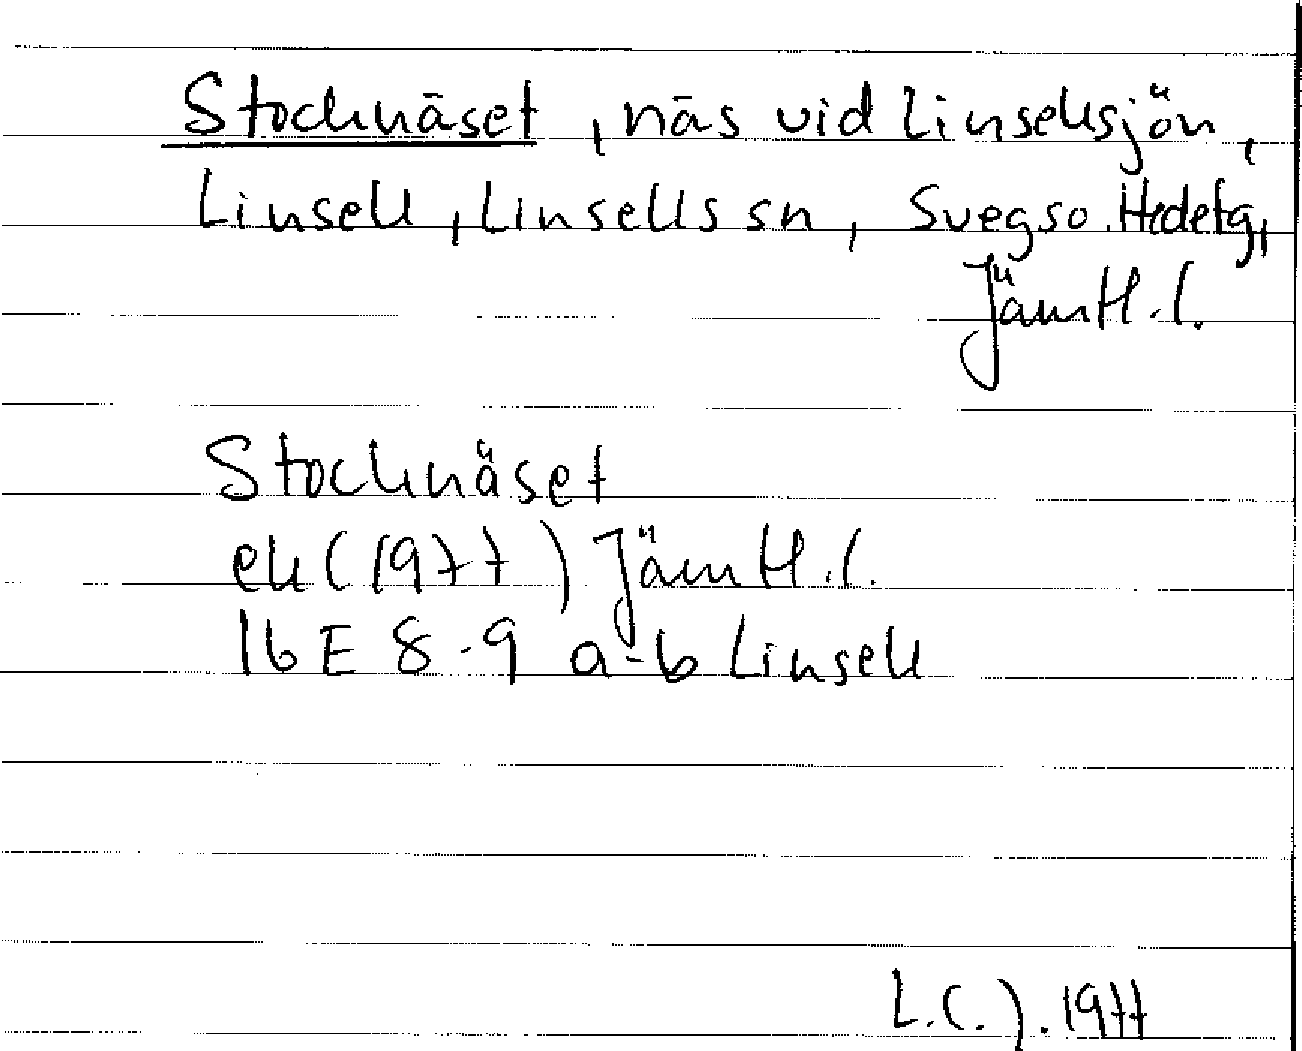 Stocknäset, näs vid Linsellsjön,
Linsell, Linsells sn, Svegs o. Hede tg,
Jämtl. l.
Stocknäset
ek (1977) Jämtl. l.
16 E 8-9 a-b Linsell
L.C.J. 1977